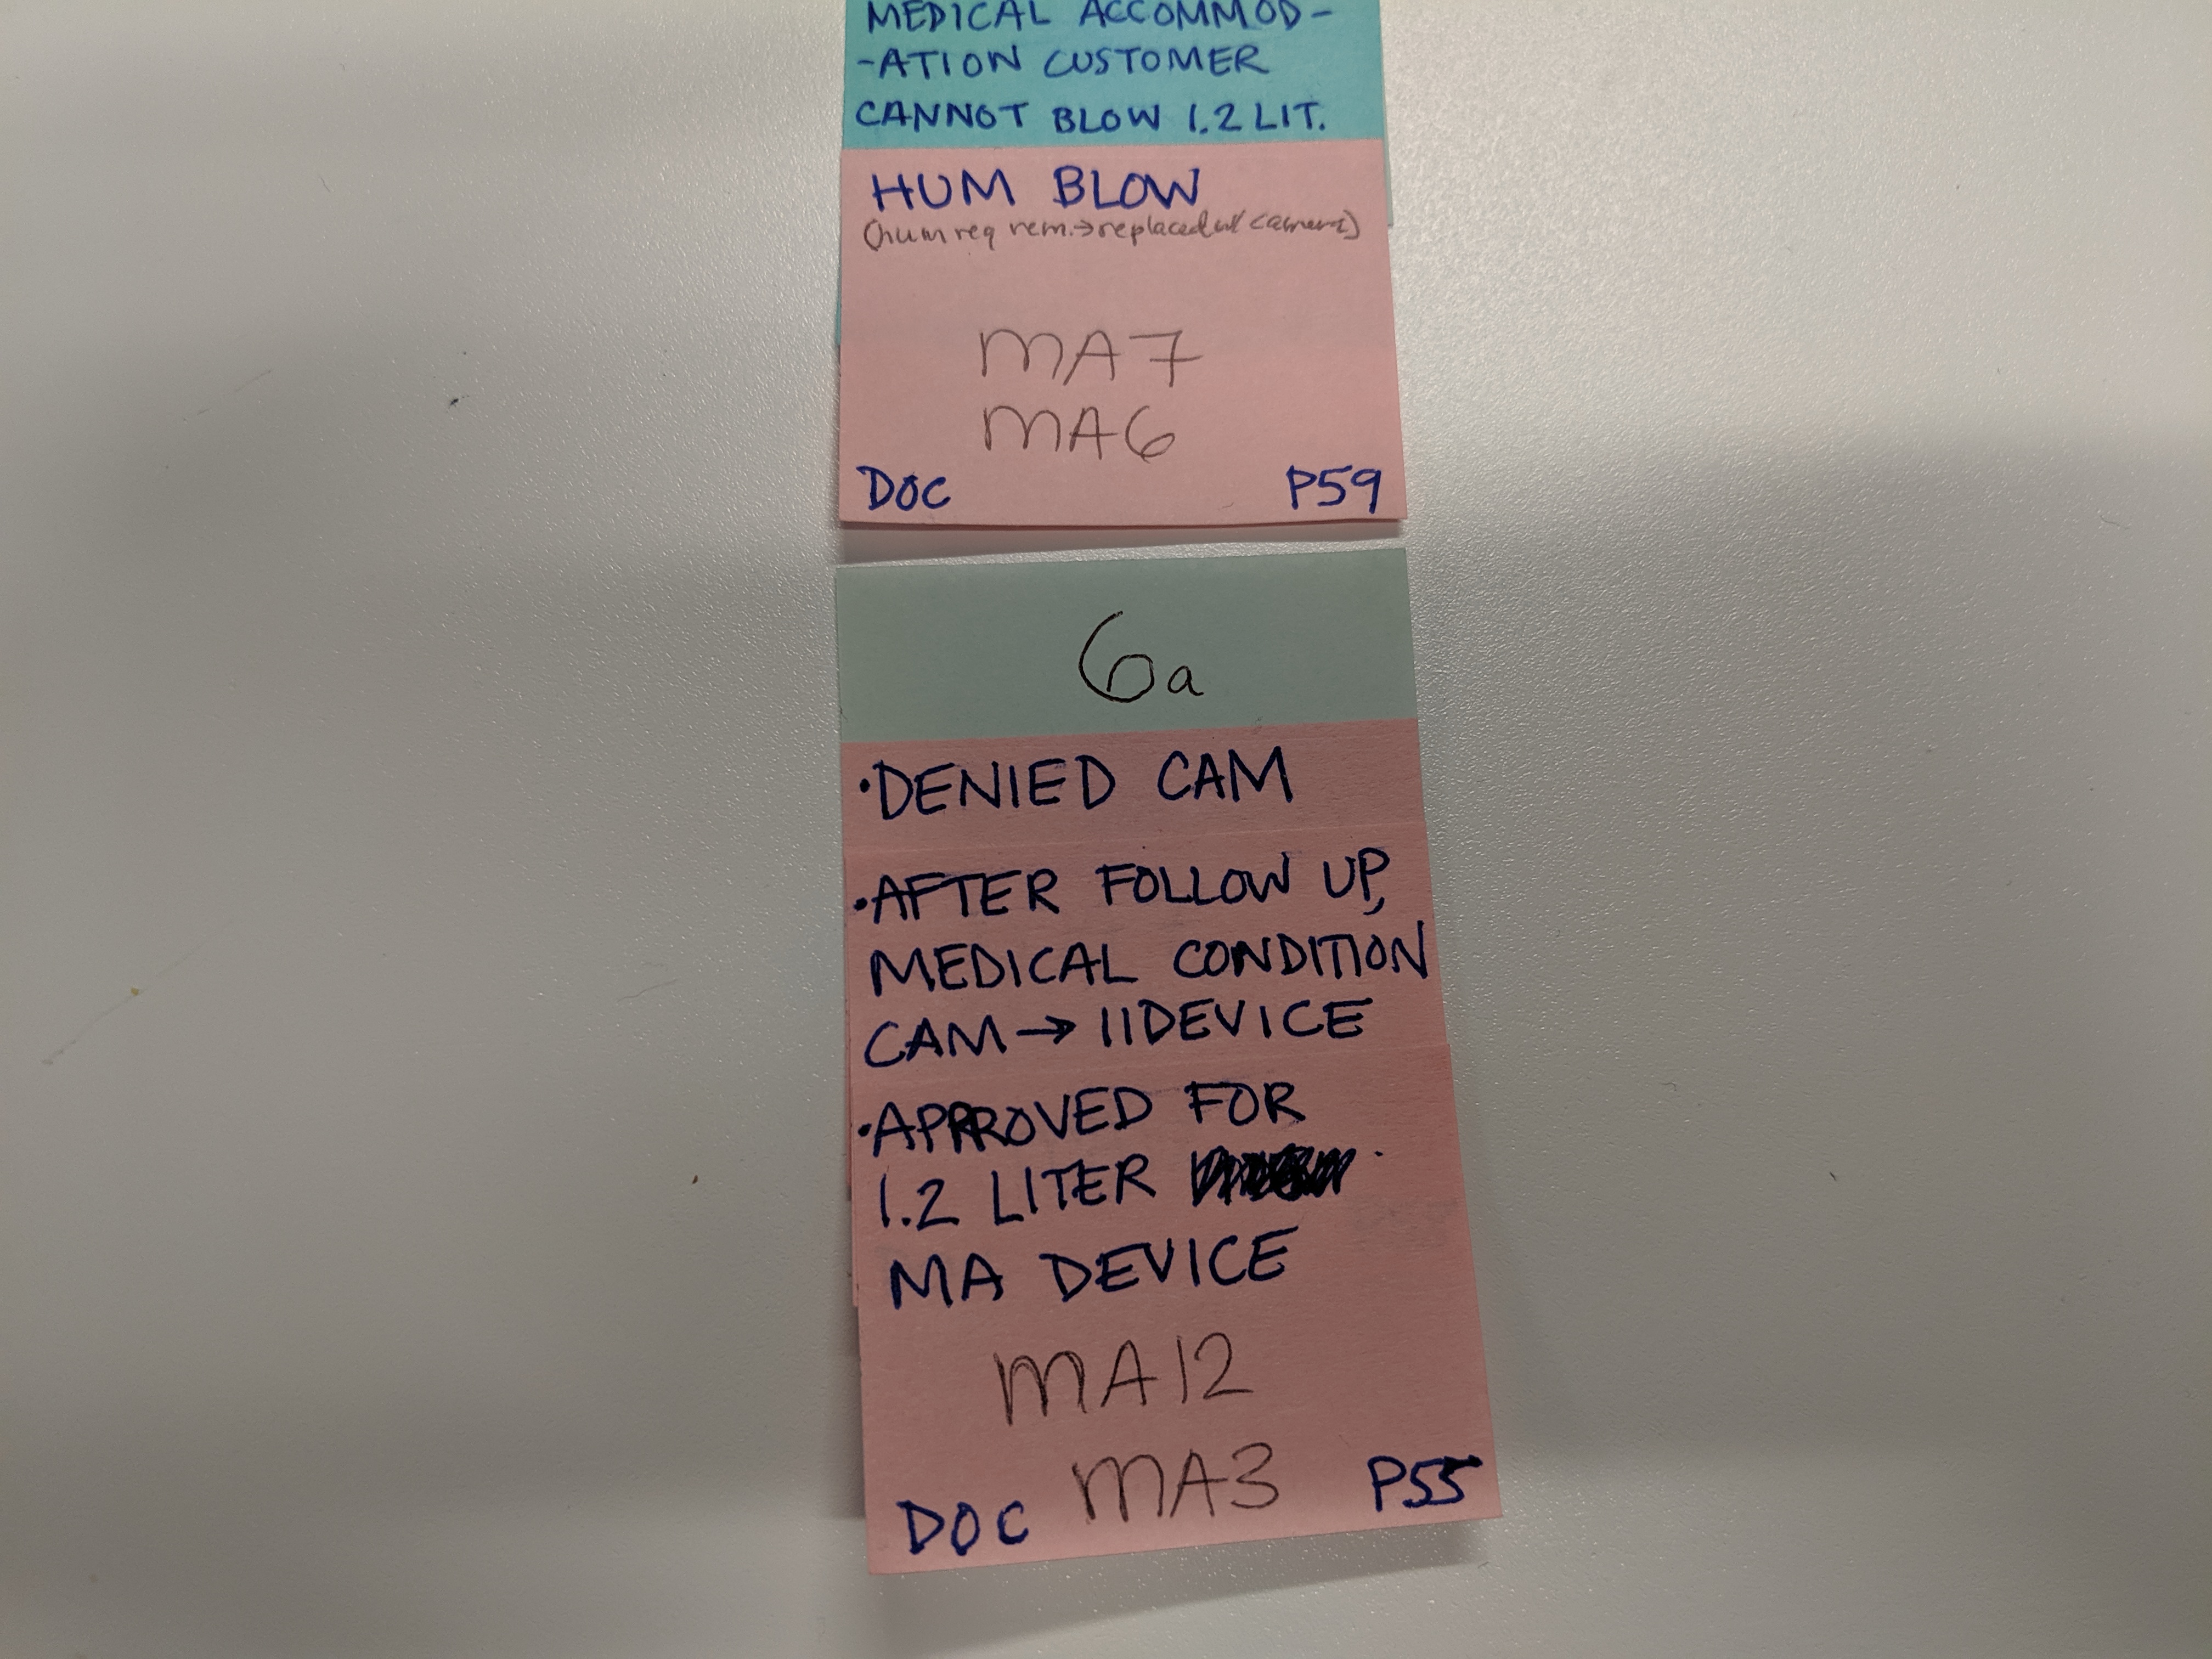 MEDICAL ACCOMMOD-
-ATION CUSTOMER
CANNOT BLOW 1.2 LIT.
HUM BLOW
(hum req rem.→replaced w/ camera)
MA7
MA6
DOC P59
6a
•DENIED CAM
•AFTER FOLLOW UP,
MEDICAL CONDITION
CAM→ IIDEVICE
•APPROVED FOR
1.2 LITER
MA DEVICE
MA12
MA3
DOC P55